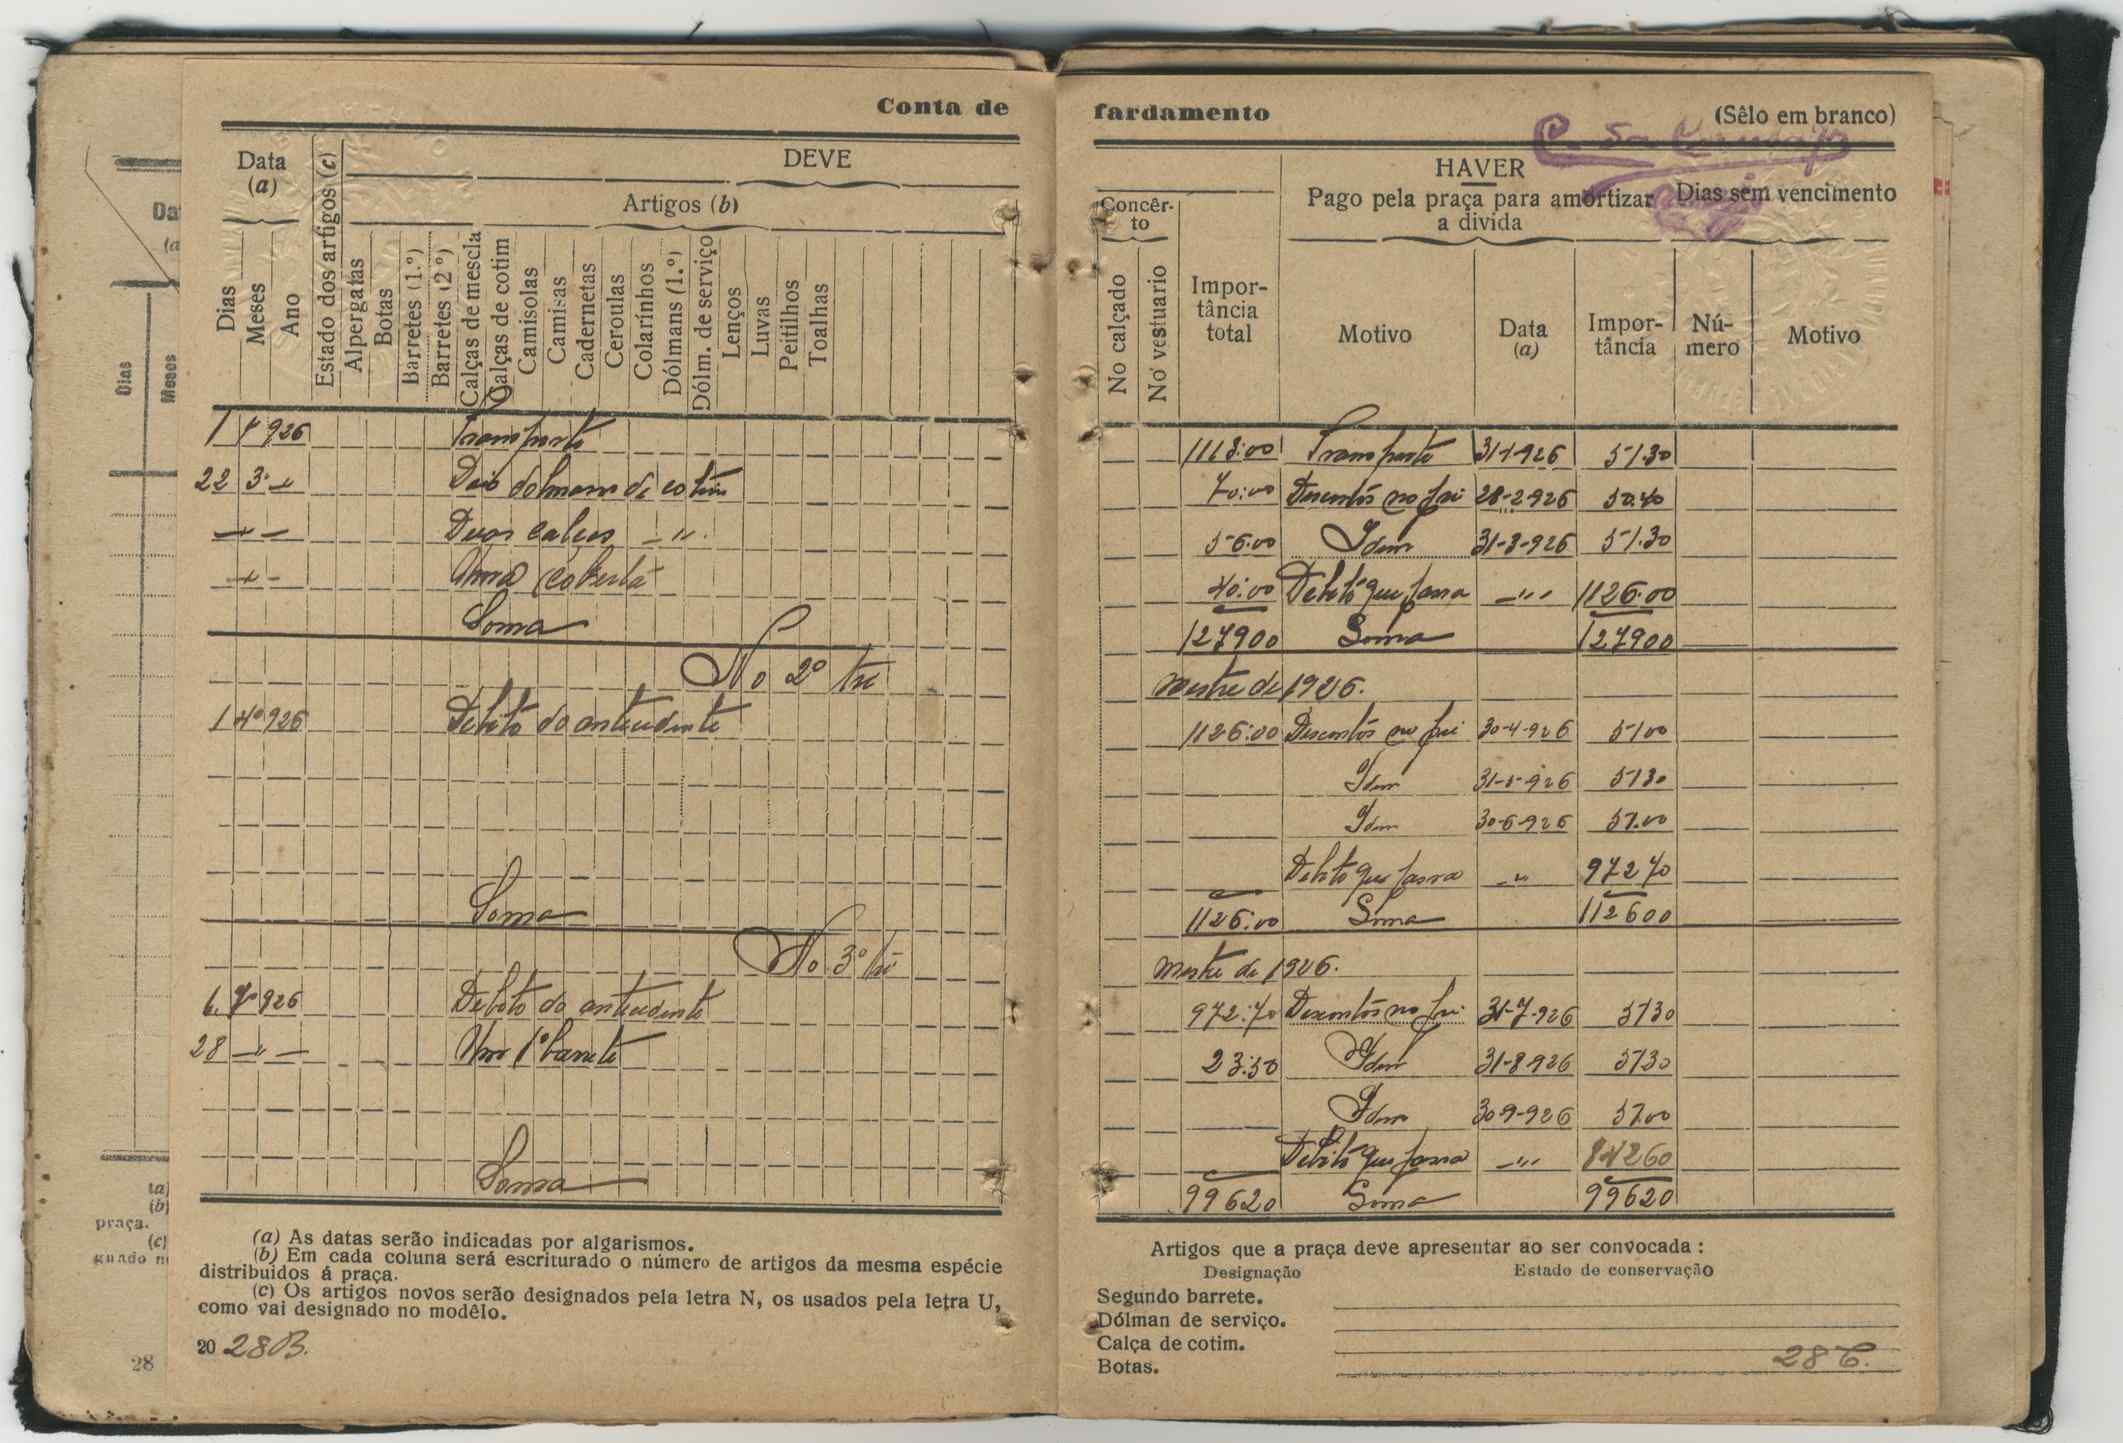 Conta de
fardamento
(Sêlo em branco)
Da
(a
Dias
Meses
(a)
(b)
praça.
(c)
guado n
28
Data
(a)
DEVE
Artigos (b)
Dias
Meses
Ano
Estado dos artigos (c)
Alpergatas
Botas
Barretes (1.º)
Barretes (2º)
Calças de mescla
Calças de cotim
Camisolas
Camisas
Cadernetas
Ceroulas
Colarinhos
Dólmans (1.º)
Dólm. de serviço
Lenços
Luvas
Peitilhos
Toalhas
1 1º 926 Transporte
22 3º " Dois dolmans de cotim
" Duas calças "
" Uma coberta
Soma
No 2º tri
1 4º 926 Debito do antecedente
Soma
No 3º tri
6. 7º 926 Debito do antecedente
28 " Um 1º barrete
Soma
(a) As datas serão indicadas por algarismos.
(b) Em cada coluna será escriturado o número de artigos da mesma espécie
distribuidos á praça.
(c) Os artigos novos serão designados pela letra N, os usados pela letra U,
como vai designado no modêlo.
20 28B.
HAVER
Concêr-
to
Pago pela praça para amortizar
a divida
Dias sem vencimento
No calçado
No vestuario
Impor-
tância
total
Motivo
Data
(a)
Impor-
tância
Nú-
mero
Motivo
1113:00 Transporte 31-1-926 51.30
70:00 Descontos no pré 28-2-926 50.40
56:00 Idem 31-3-926 51.30
40:00 Debito que passa " 1126:00
127900 Soma 127900
mestre de 1926.
1126:00 Descontos no pré 30-4-926 5100
Idem 31-5-926 5130
Idem 30-6-926 51.00
Debito que passa " 97270
1126:00 Soma 112600
mestre de 1926.
972:70 Descontos no pré 31-7-926 5130
23:50 Idem 31-8-926 5130
Idem 30-9-926 51.00
Debito que passa " 84260
99620 Soma 99620
Artigos que a praça deve apresentar ao ser convocada :
Designação Estado de conservação
Segundo barrete.
Dólman de serviço.
Calça de cotim.
Botas.
28 C.